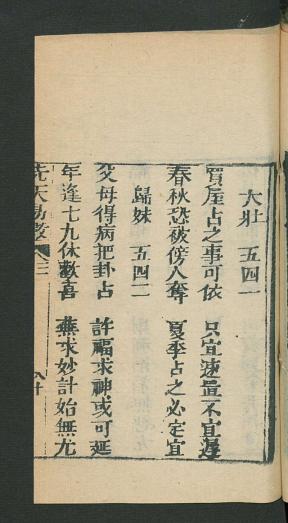 大壯 五四一
買屋占之事可依 只宜速置不宜遲
春秋恐破傍人奪 夏季占之必定宜
歸妹 五四二
父母得病把卦占 許福求神或可延
年逢七九休歡喜 無求妙計始無尤
先天易數 卷三 八十